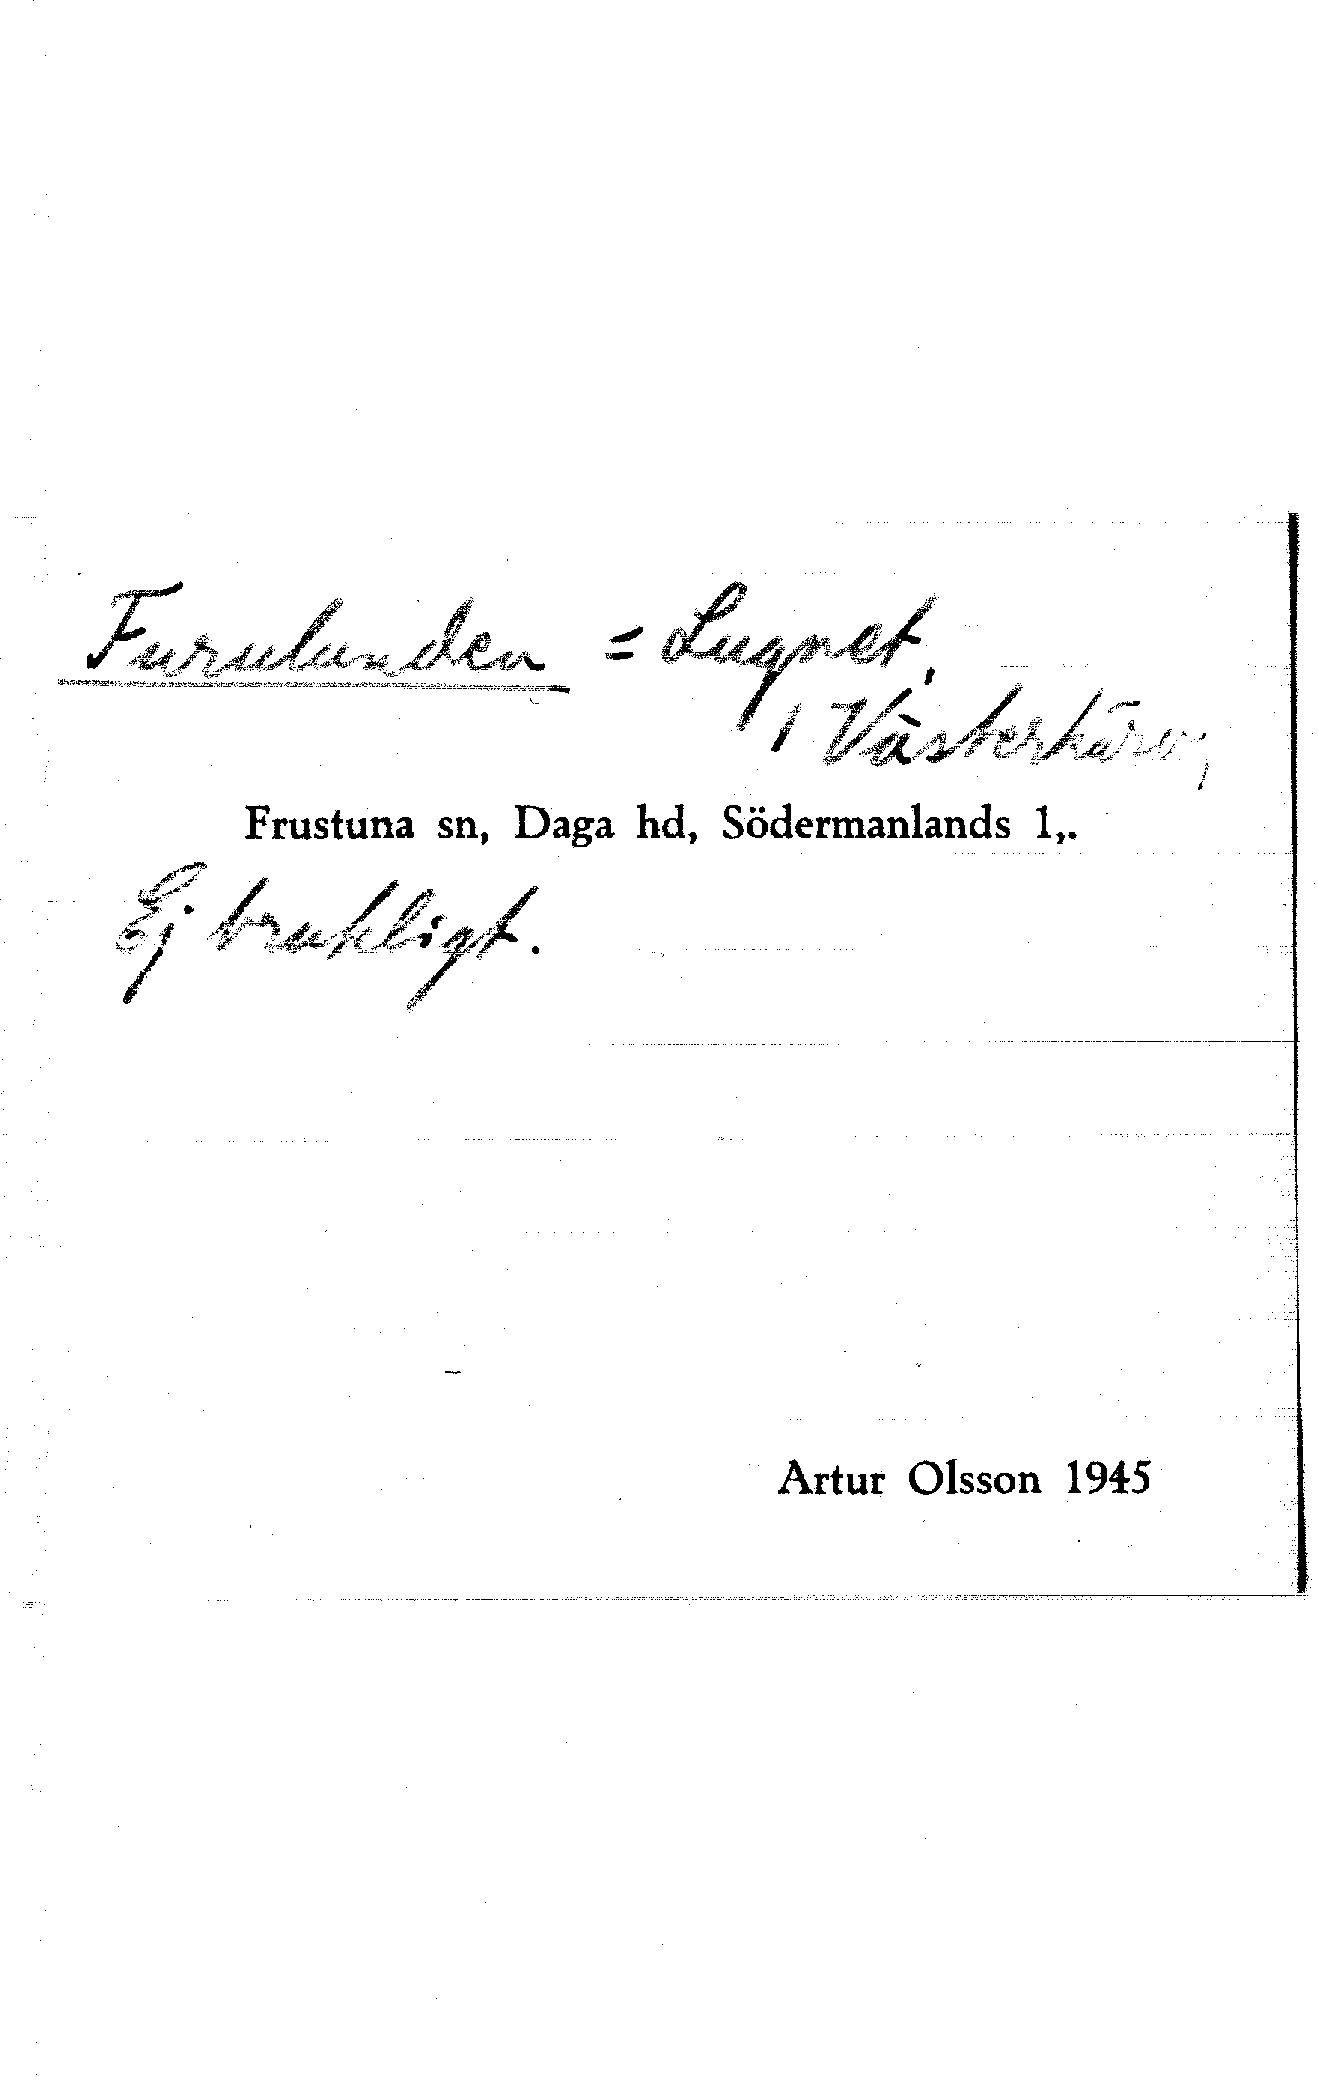 Furulunden = Lugnet,
1 Västerkärv,
Frustuna sn, Daga hd, Södermanlands l,.
Ej brukligt.
Artur Olsson 1945